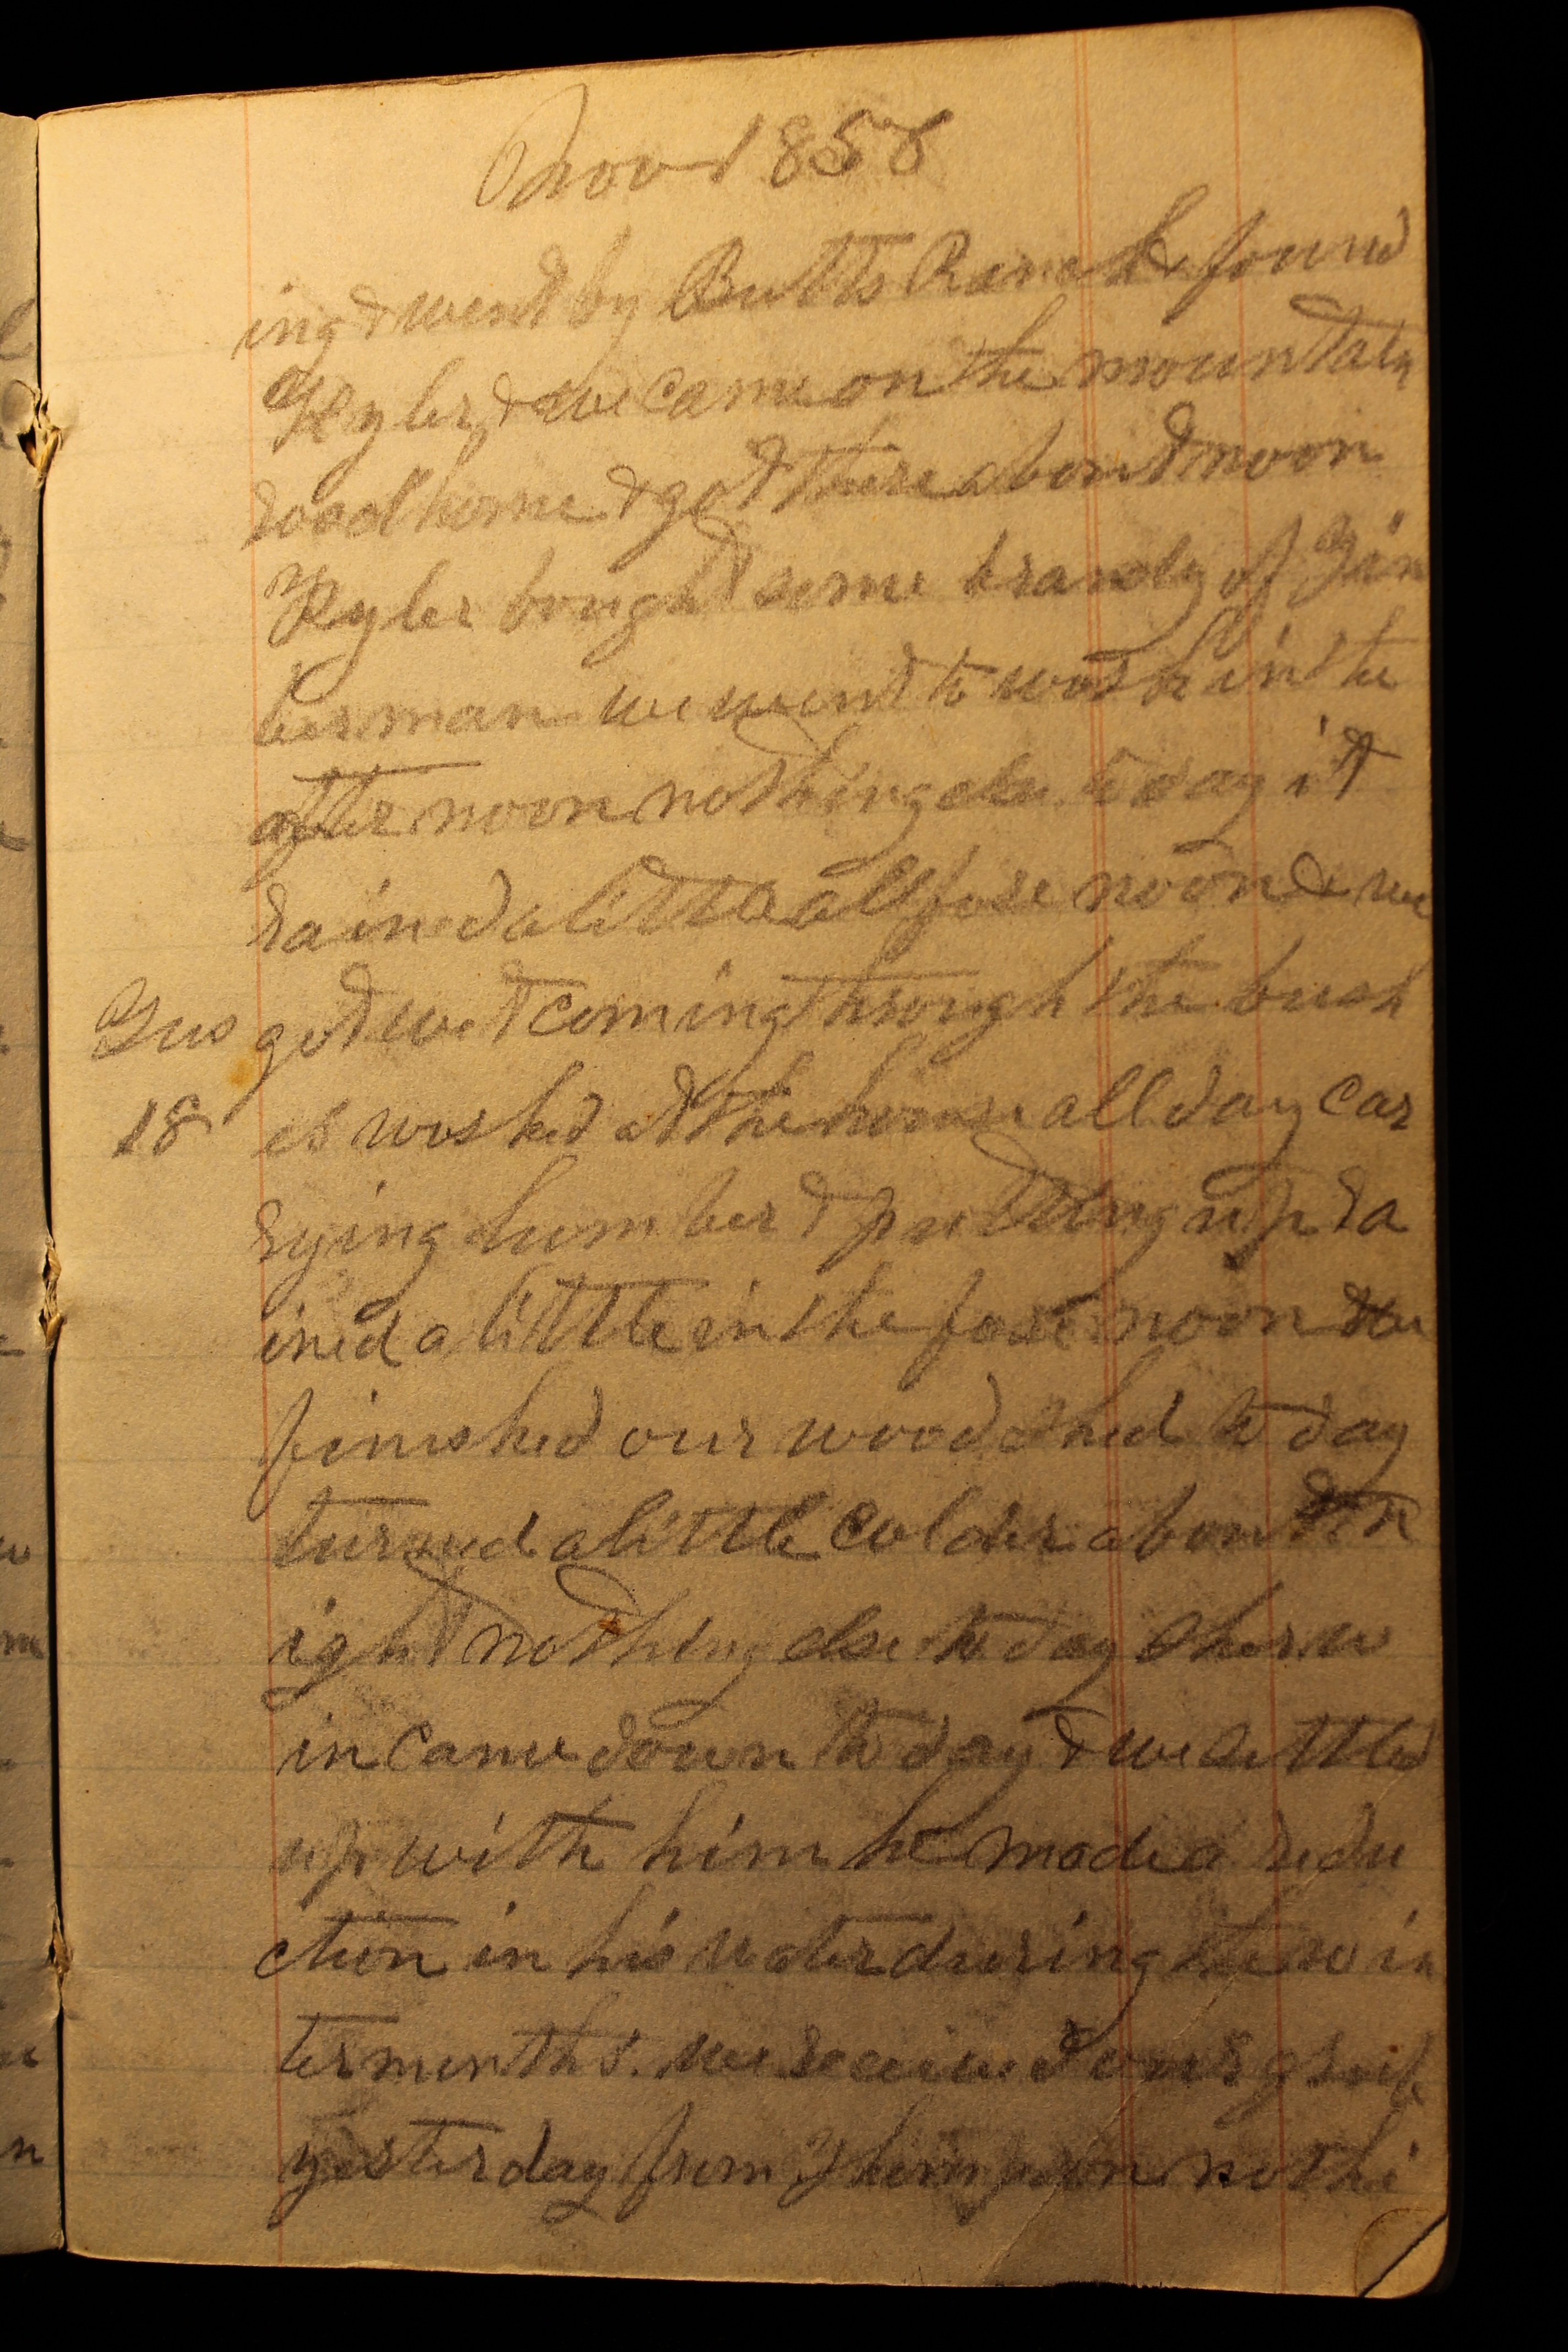 Nov 1858
ing & went by Butts Ranch & found
Kyler & we came on the mountain
road home & got there about noon
Kyler bought some brandy of Zim
berman we went to work in the
after noon nothing else to day it
rained a little all fore noon & we
got wet coming through the bush
Tus
18 es worked at the house all day car
rying lumber & putting up ra
ined a little in the fore noon we
finished our wood shed to day
turned a little colder about n
ight nothing else to day Sherw
in came down to day & we settled
up with him he made a redu
ction in his water during the win
ter months. we received our
yesterday from Thompson nothi